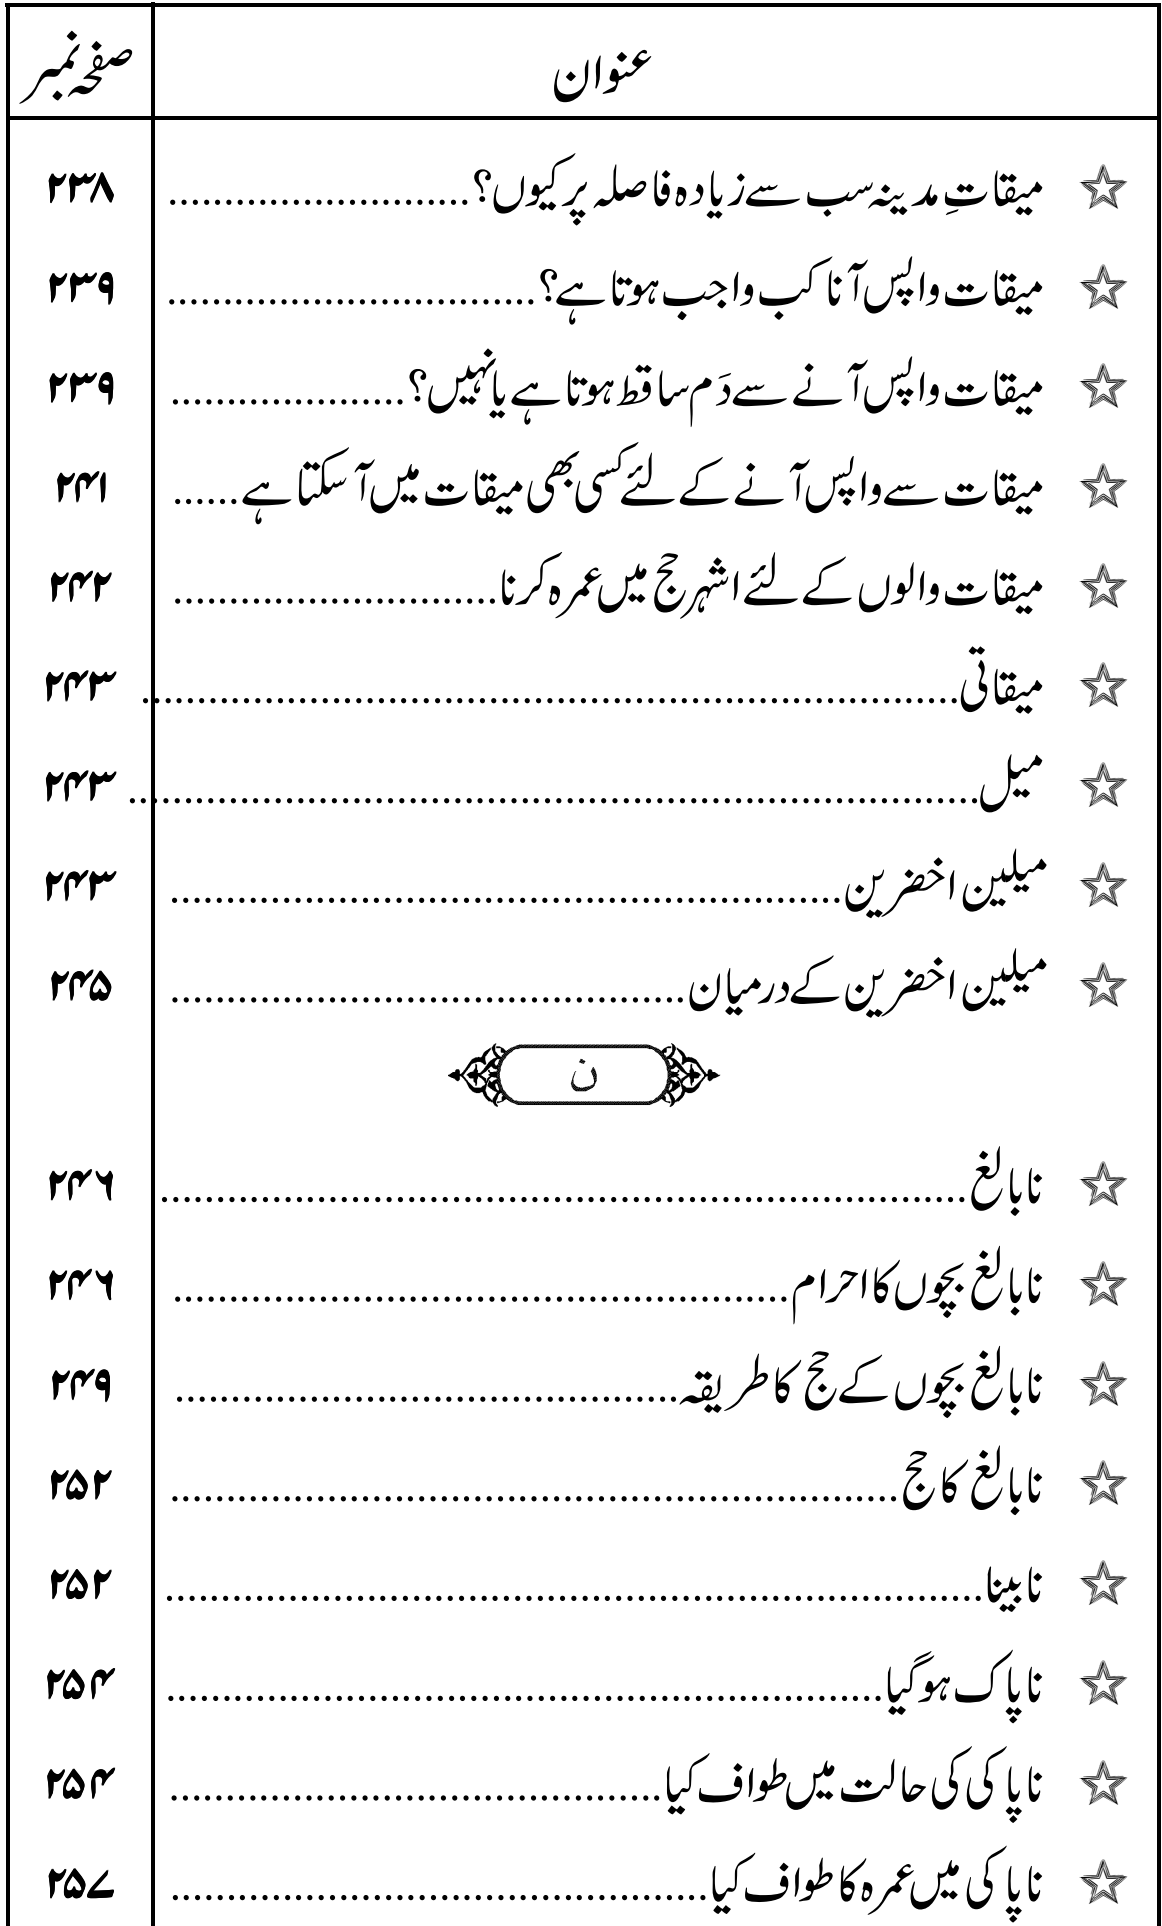 عنوان صفحہ نمبر
☆ میقاتِ مدینہ سب سے زیادہ فاصلہ پر کیوں؟ .......................... ۲۳۸
☆ میقات واپس آنا کب واجب ہوتا ہے؟ ................................ ۲۳۹
☆ میقات واپس آنے سے دَم ساقط ہوتا ہے یا نہیں؟ .................... ۲۳۹
☆ میقات سے واپس آنے کے لئے کسی بھی میقات میں آسکتا ہے ...... ۲۴۱
☆ میقات والوں کے لئے اشہر حج میں عمرہ کرنا ............................ ۲۴۲
☆ میقاتی ........................................................................ ۲۴۳
☆ میل ........................................................................... ۲۴۳
☆ میلین اخضرین ........................................................... ۲۴۳
☆ میلین اخضرین کے درمیان ............................................. ۲۴۵
ن
☆ نابالغ ....................................................................... ۲۴۶
☆ نابالغ بچوں کا احرام ...................................................... ۲۴۶
☆ نابالغ بچوں کے حج کا طریقہ ............................................ ۲۴۹
☆ نابالغ کا حج ................................................................ ۲۵۲
☆ نابینا ........................................................................ ۲۵۲
☆ ناپاک ہوگیا ............................................................... ۲۵۴
☆ ناپاکی کی حالت میں طواف کیا ........................................... ۲۵۴
☆ ناپاکی میں عمرہ کا طواف کیا ............................................... ۲۵۷